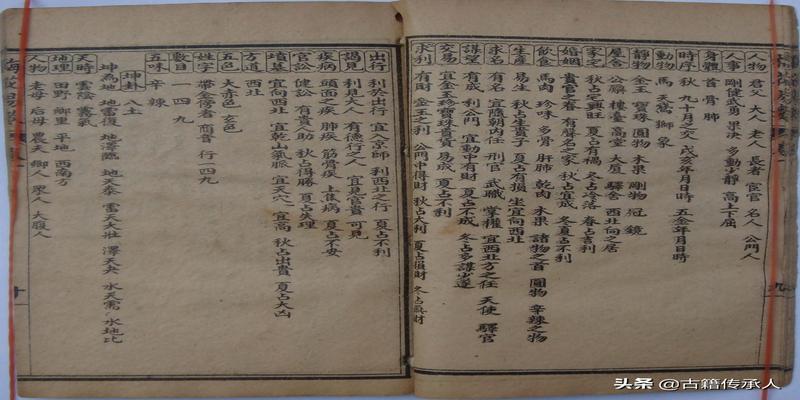 人物 君父 大人 老人 長者 宦官 名人 公門人
人事 剛健武勇 果決 多動少靜 高上下屈
身體 首 骨 肺
時序 秋 九十月之交 戌亥年月日時 五金年月日時
動物 馬 天鵝 獅 象
靜物 金玉 寶珠 圓物 木果 剛物 冠 鏡
屋舍 公廨 樓臺 高堂 大厦 驛舍 西北向之居
家宅 秋占宅興旺 夏占有禍 冬占冷落 春占吉利
婚姻 貴官之眷 有聲名之家 秋占宜成 冬夏占不利
飲食 馬肉 珍味 多骨 肝肺 乾肉 木果 諸物之首 圓物 辛辣之物
生產 易生 秋占生貴子 夏占有損 坐宜向西北
求名 有名 宜隨朝內任 刑官 武職 掌權 宜西北方之任 天使 驛官
謀望 有成 利公門 宜動中有財 夏占不成 冬占多謀少遂
交易 宜金玉珍寶珠貴貨 易成 夏占不利
求利 有財 金玉之利 公門中得財 秋占大利 夏占損財 冬占無財
出行 利於出行 宜入京師 利西北之行 夏占不利
謁見 利見大人 有德行之人 宜見官貴 可見
疾病 頭面之疾 肺疾 筋骨疾 上焦病 夏占不安
官訟 健訟 有貴人助 秋占得勝 夏占失理
墳墓 宜向西北 宜乾山氣脈 宜天穴 宜高 秋占出貴 夏占大凶
方道 西北
五色 大赤色 玄色
姓字 帶金傍者 商音 行一四九
數目 一 四 九
五味 辛 辣
坤卦 八土
坤為地 地雷復 地澤臨 地天泰 雷天大壯 澤天夬 水天需 水地比
天時 雲陰 霧氣
地理 田野 鄉里 平地 西南方
人物 老母 后母 農夫 鄉人 眾人 大腹人
九
十
头条 @古籍传承人